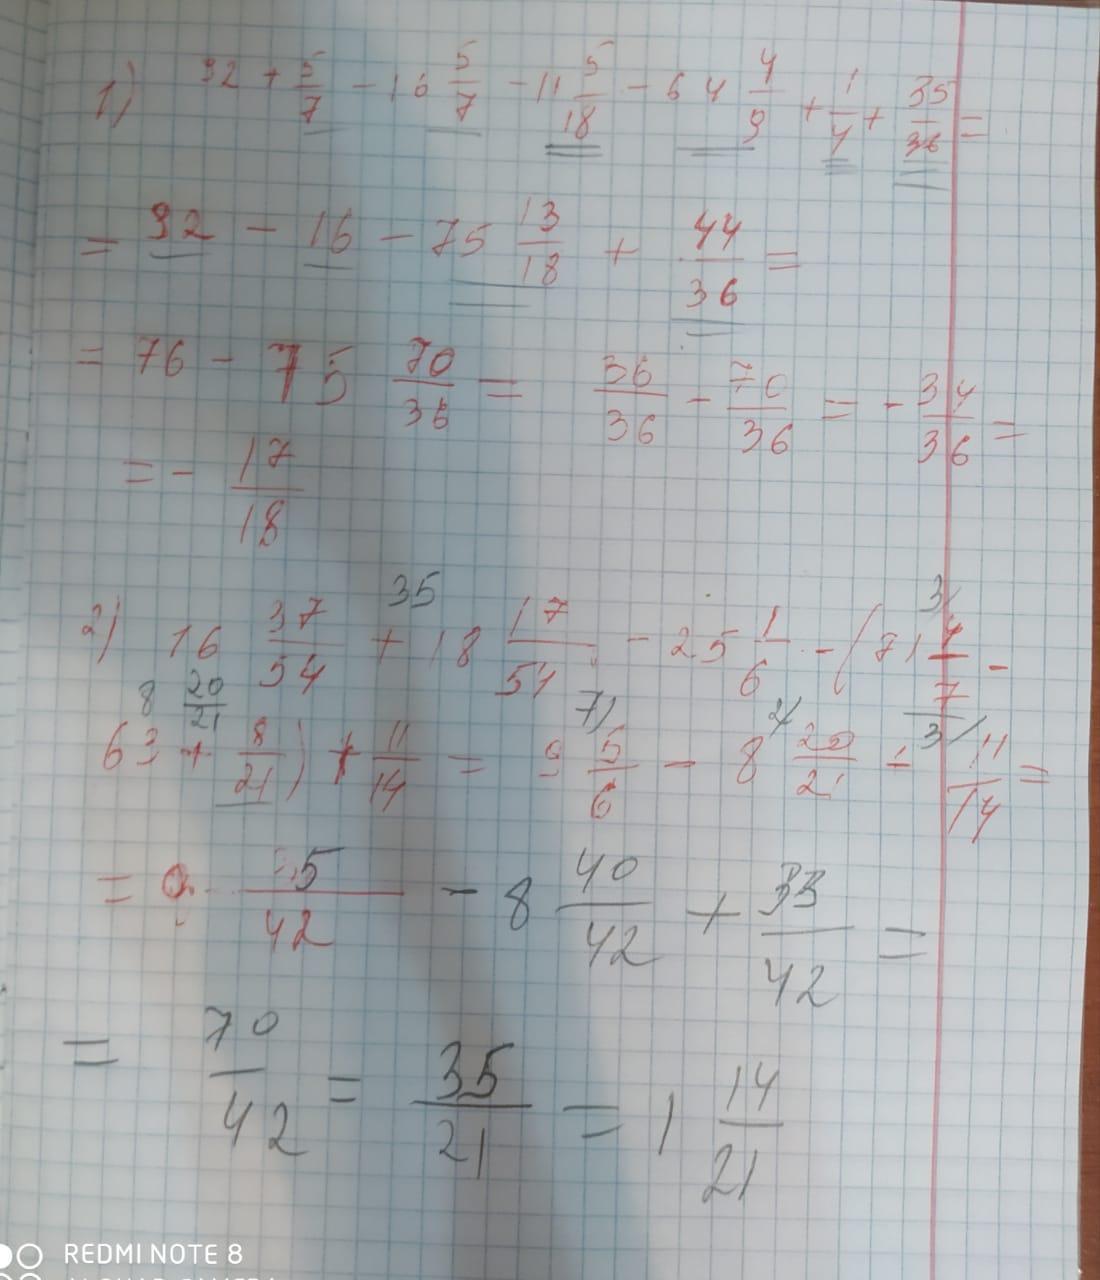 1) 92 + 5/7 - 16 5/7 - 11 5/18 - 64 4/9 + 1/4 + 35/36 =
= 92 - 16 - 75 13/18 + 44/36 =
= 76 - 75 70/36 = 36/36 - 70/36 = - 34/36 =
= - 17/18
35 3/
2) 16 37/54 + 18 17/54 - 25 1/6 - (71 4/7 -
8 20/21 7) 2/ 3/
63 + 8/21) + 11/14 = 9 5/6 - 8 20/21 + 11/14 =
= 9 35/42 - 8 40/42 + 33/42 =
= 70/42 = 35/21 = 1 14/21
REDMI NOTE 8